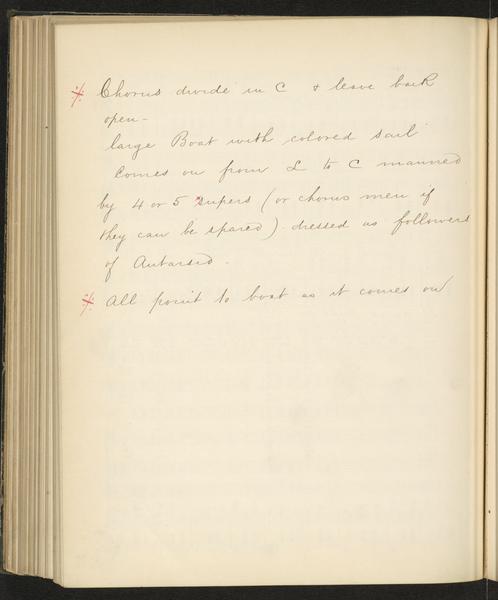 ⁒ Chorus divide in C & leave back
open -
large Boat with colored sail
Comes on from L to C manned
by 4 or 5 supers (or chorus men if
they can be spared) dressed as followers
of Antarsid.
⁒ All point to boat as it comes on